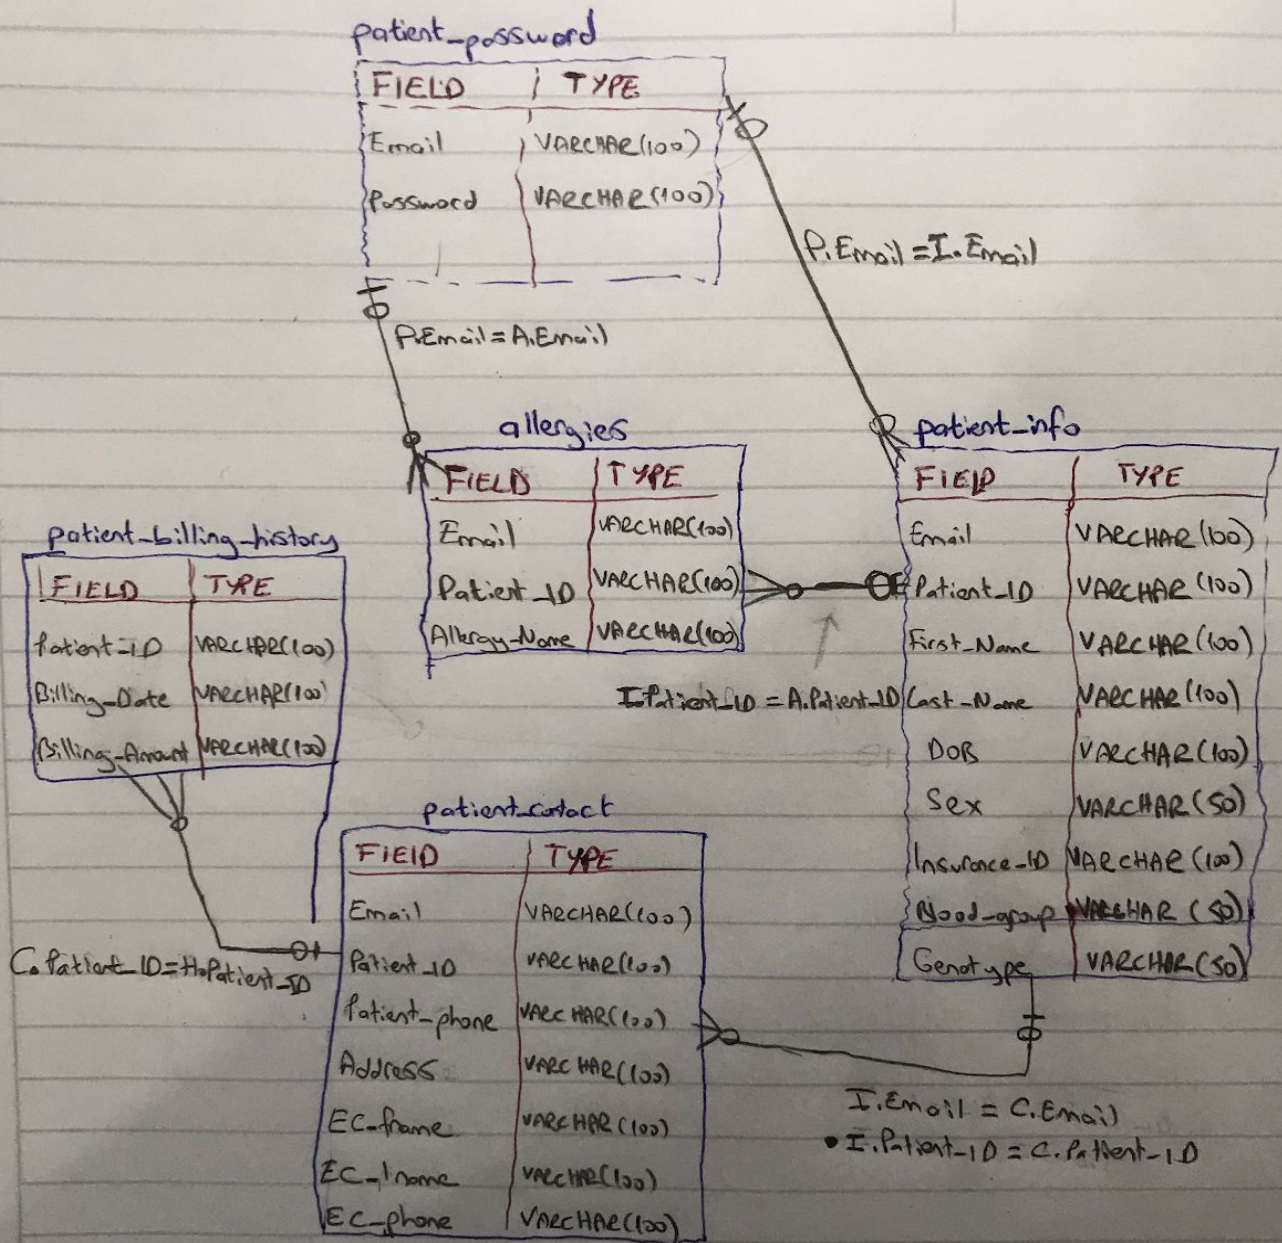 patient_password
FIELD TYPE
Email VARCHAR(100)
Password VARCHAR(100)
P.Email = I.Email
P.Email = A.Email
allergies
FIELD TYPE
Email VARCHAR(100)
Patient_ID VARCHAR(100)
Allergy_Name VARCHAR(100)
patient_info
FIELD TYPE
Email VARCHAR(100)
Patient_ID VARCHAR(100)
First_Name VARCHAR(100)
Last_Name VARCHAR(100)
DOB VARCHAR(100)
Sex VARCHAR(50)
Insurance_ID VARCHAR(100)
Blood_group VARCHAR(50)
Genotype VARCHAR(50)
I.Patient_ID = A.Patient_ID
patient_billing_history
FIELD TYPE
Patient_ID VARCHAR(100)
Billing_Date VARCHAR(100)
Billing_Amount VARCHAR(100)
C.Patient_ID = H.Patient_ID
patient_cotact
FIELD TYPE
Email VARCHAR(100)
Patient_ID VARCHAR(100)
Patient_phone VARCHAR(100)
Address VARCHAR(100)
EC_fname VARCHAR(100)
EC_lname VARCHAR(100)
EC_phone VARCHAR(100)
I.Email = C.Email
• I.Patient_ID = C.Patient_ID